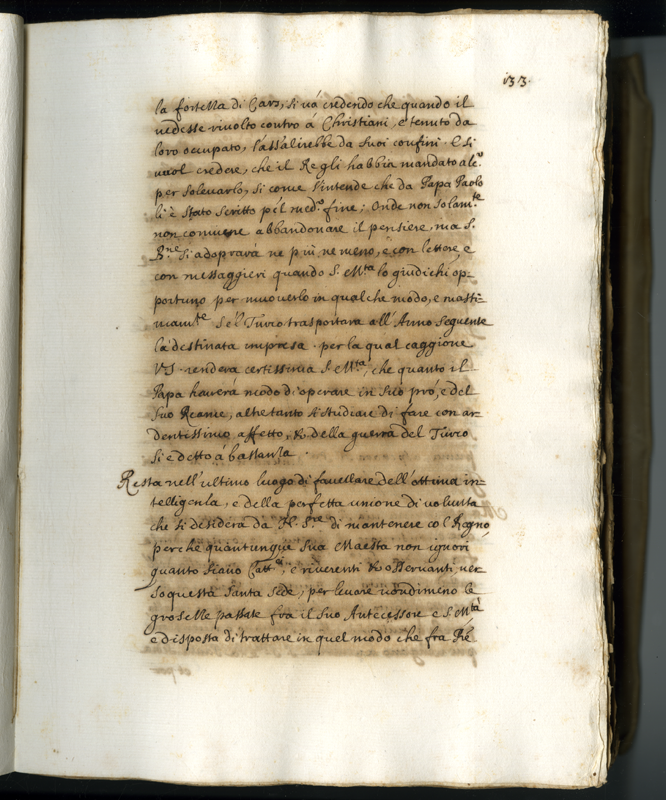 133.
la fortezza di Cars, si và credendo che quando il
vedesse rivolto contro à Christiani, e tenuto da
loro occupato, l'assalirebbe da suoi confini. E si
vuol credere, che il Re gli habbia mandato
per solevarlo, si come s'intende che da Papa Paolo
li è stato scritto p'el med.º fine; Onde non solam.te
non conviene abbandonare il pensiere, ma S.
B.ne si adoprarà ne più ne meno, e con lettere, e
con messaggieri quando S. M.tà lo giudichi op-
portuno per muoverlo in qualche modo, e massi-
mam.te se'l Turco trasportara all'Anno seguente
la destinata impresa. per la qual caggione
VS. renderà certissima S. M.tà, che quanto il
Papa haverà modo di operare in suo prò, e del
suo Reame, altretanto si studiarà di fare con ar-
dentissimo affetto, & della guerra del Turco
si è detto à bastanza.
Resta nell'ultimo luogo di favellare dell'ottima in-
telligenza, e della perfetta unione di volontà
che si desidera da N. S.re di mantenere col Regno,
perche quantunque sua Maestà non ignori
quanto siano Catt.ci, e riverenti & osservanti ver-
so questa Santa Sede, per levare nondimeno le
grosezze passate frà il suo Antecessore e S. M.tà
e disposta di trattare in quel modo che frà Rè